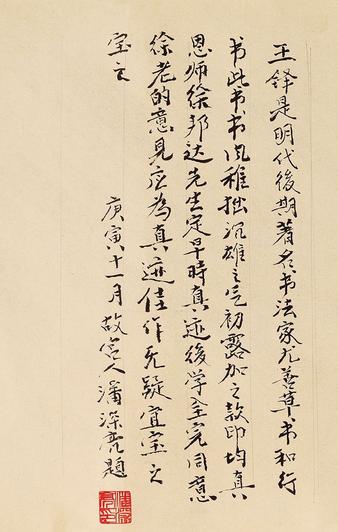 王铎是明代後期著名书法家尤善草书和行
书此书书风稚拙沉雄之气初露加之款印均真
恩师徐邦达先生定早時真迹後学全完同意
徐老的意見应為真迹佳作无疑宜宝之
宝之
庚寅十一月故宫人潘深亮題